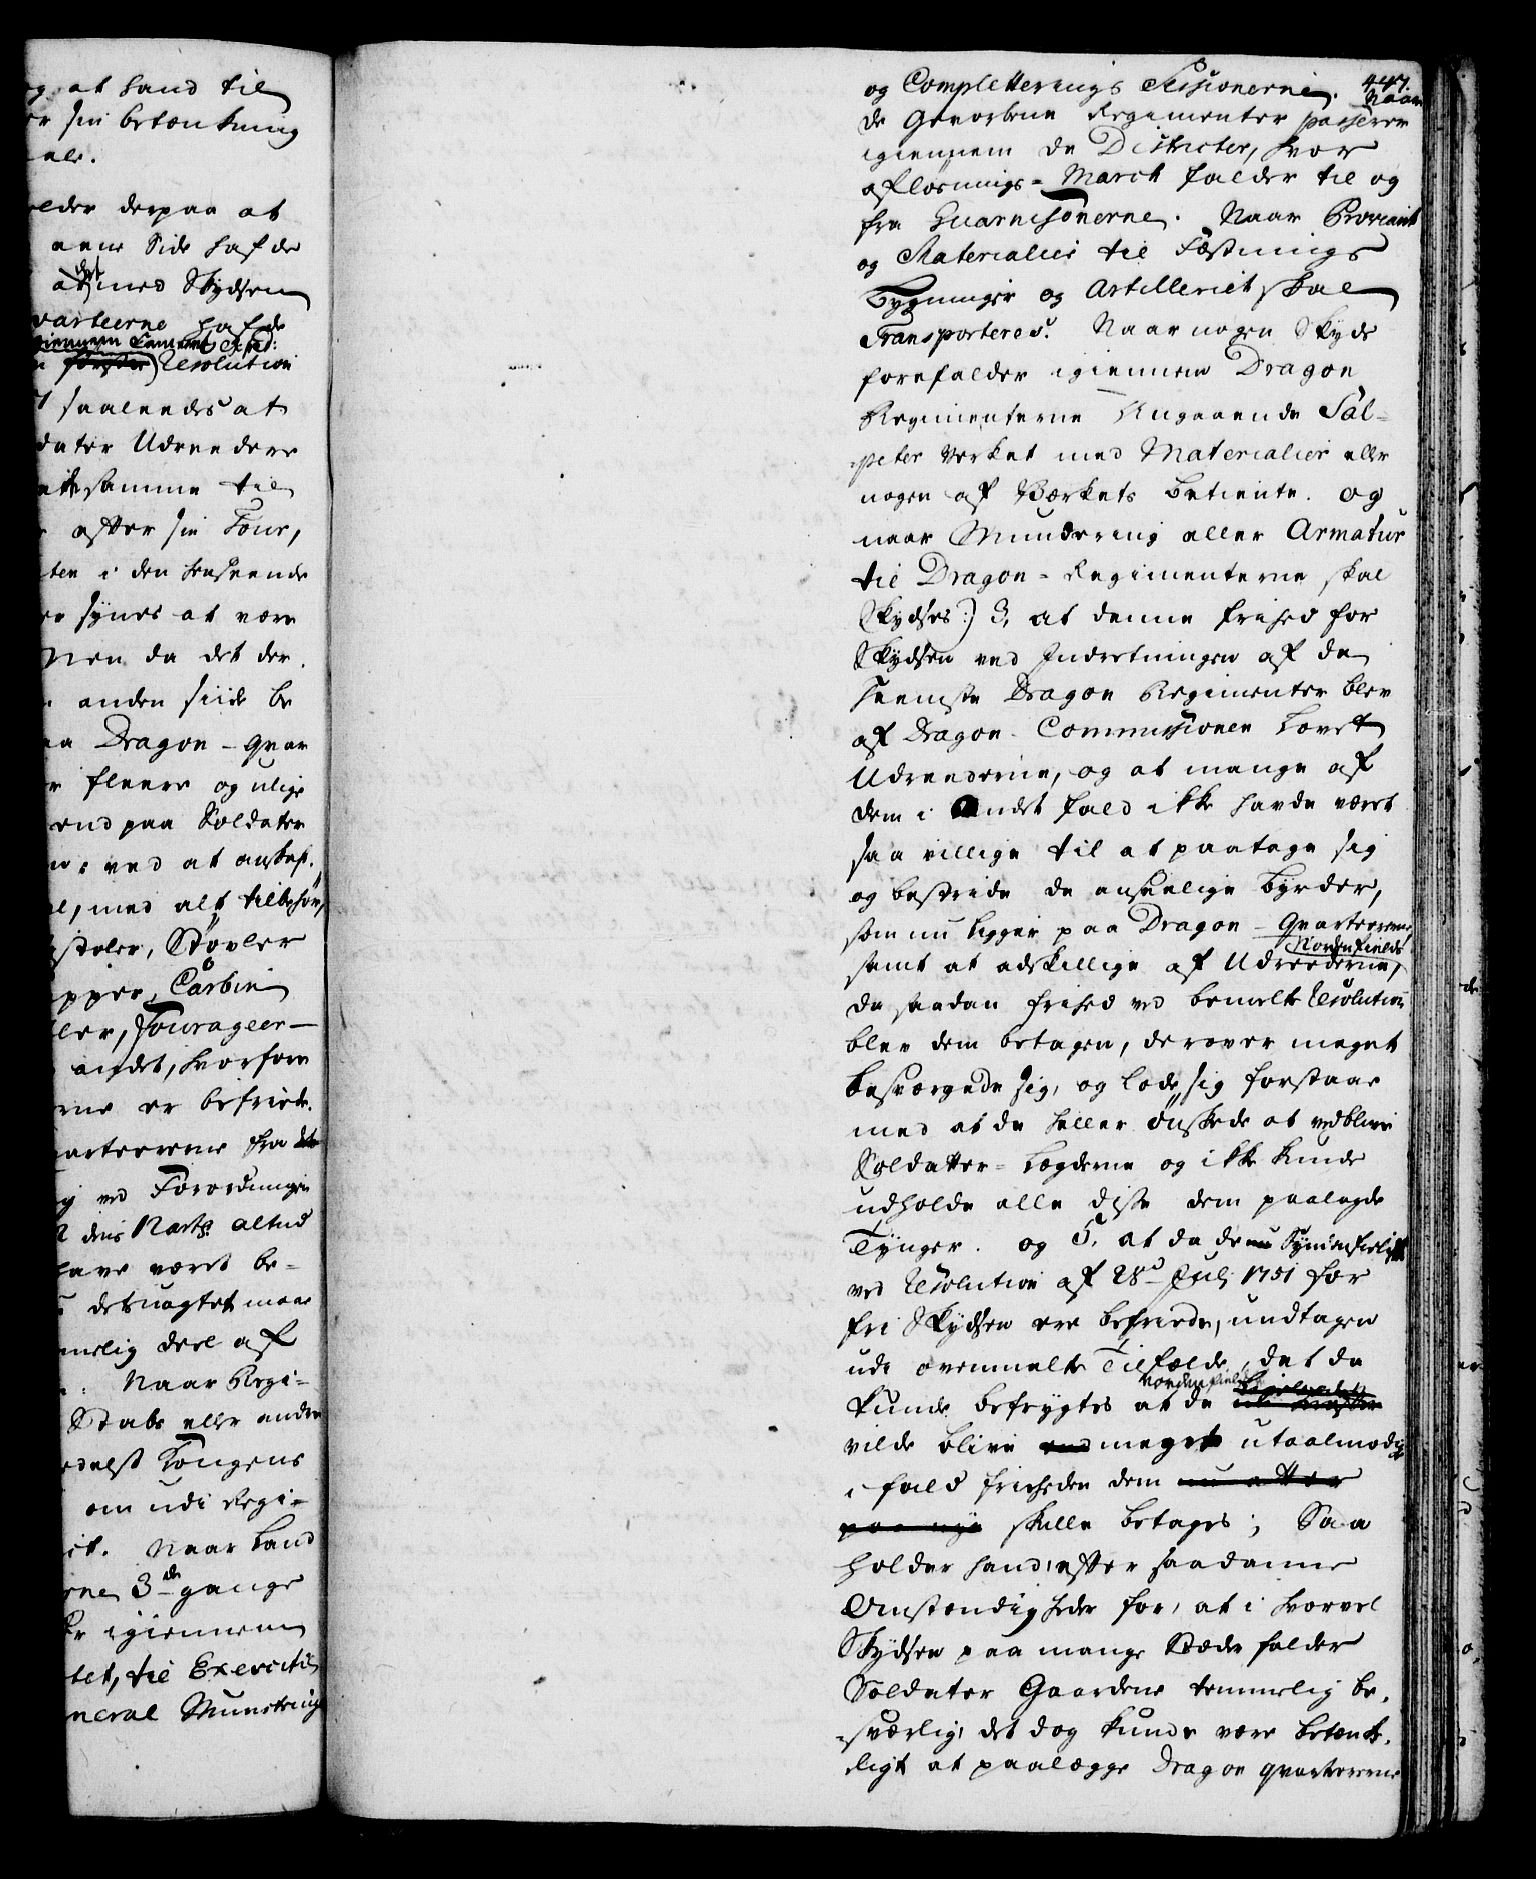 g at hand til
er sin betænkning
ale.
elder derpaa at
eene Side hafde
at det med Skydsen
varteerne hafde
giennem Cammer Exped:
forste) Resolution
saaleedes at
dater Udreedere
samme til
efter sin Tour,
ten i den henseende
er synes at være
Men da det der
anden siide be
aa Dragon-Qvar
r fleere og ulige
end paa Soldater
ved at anskaf-
el, med alt tilbehør,
Pistoler, Støvler
apper, Carbin
ler, Fourageer-
andet, hvorfore
erne er befriede.
varteererne fra
ved Forordningen
2 dens Marts altid
have været be-
desuagtet maae
mmelig deel af
Naar Regi-
Stabs eller anden
edelst Kongens
om udi Regi-
it. Naar Land
rne 3de gange
er igiennem
tet, til Exercitie
neral Munstring
447.
og Completterings Sessionerne. Naar
de Gevorbne Regimenter passerer
igiennem de Districter, hvor
afløsnings-March falder til og
fra Guarnisonerne. Naar Proviant
og Materialier til Fæstnings
Bygninger og Artilleriet skal
Transporteres. Naar nogen Skyds
forefalder igiennem Dragon
Regimenterne Angaaende Sal-
peter Verket med Materialier eller
nogen af Værkets betiente. og
naar Mundering eller Armatur
til Dragon-Regimenterne skal
Skydses:) 3, at denne frihed for
Skydsen ved Indretningen af de
fleeste Dragon Regimenter blev
af Dragon-Commissionen lovet
Udreederne, og at mange af
dem i andet fald ikke havde været
saa villige til at paatage sig
og bestride de anseelige byrder,
som nu ligger paa Dragon-Qvartererne,
samt at adskillige af Udreederne Nordenfields,
da saadan frihed ved bemelte Resolution
blev dem betagen, derover meget
besværgede sig, og lode sig forstaae
med at de heller ønskede at vedblive
Soldatter-Lægderne og ikke kunde
udholde alle disse dem paalagde
Tynger. og 5, at da de nu Syndenfieldske
ved Resolution af 28d Julj 1751 for
fri Skydsen ere befriede, undtagen
udi ovenmelte Tilfælde, det da
kunde befrygtes at de Nordenfields
vilde blive end meget utaalmodige
i fald friheden dem nu atter
paa nye skulle betages; Saa
holder hand, efter saadanne
Omstændigheder for, at i hvorvel
Skydsen paa mange Stæder falder
Soldater Gaardene temmelig be-
sværlig, det dog kunde være betænk-
ligt at paalægge Dragon qvartererne